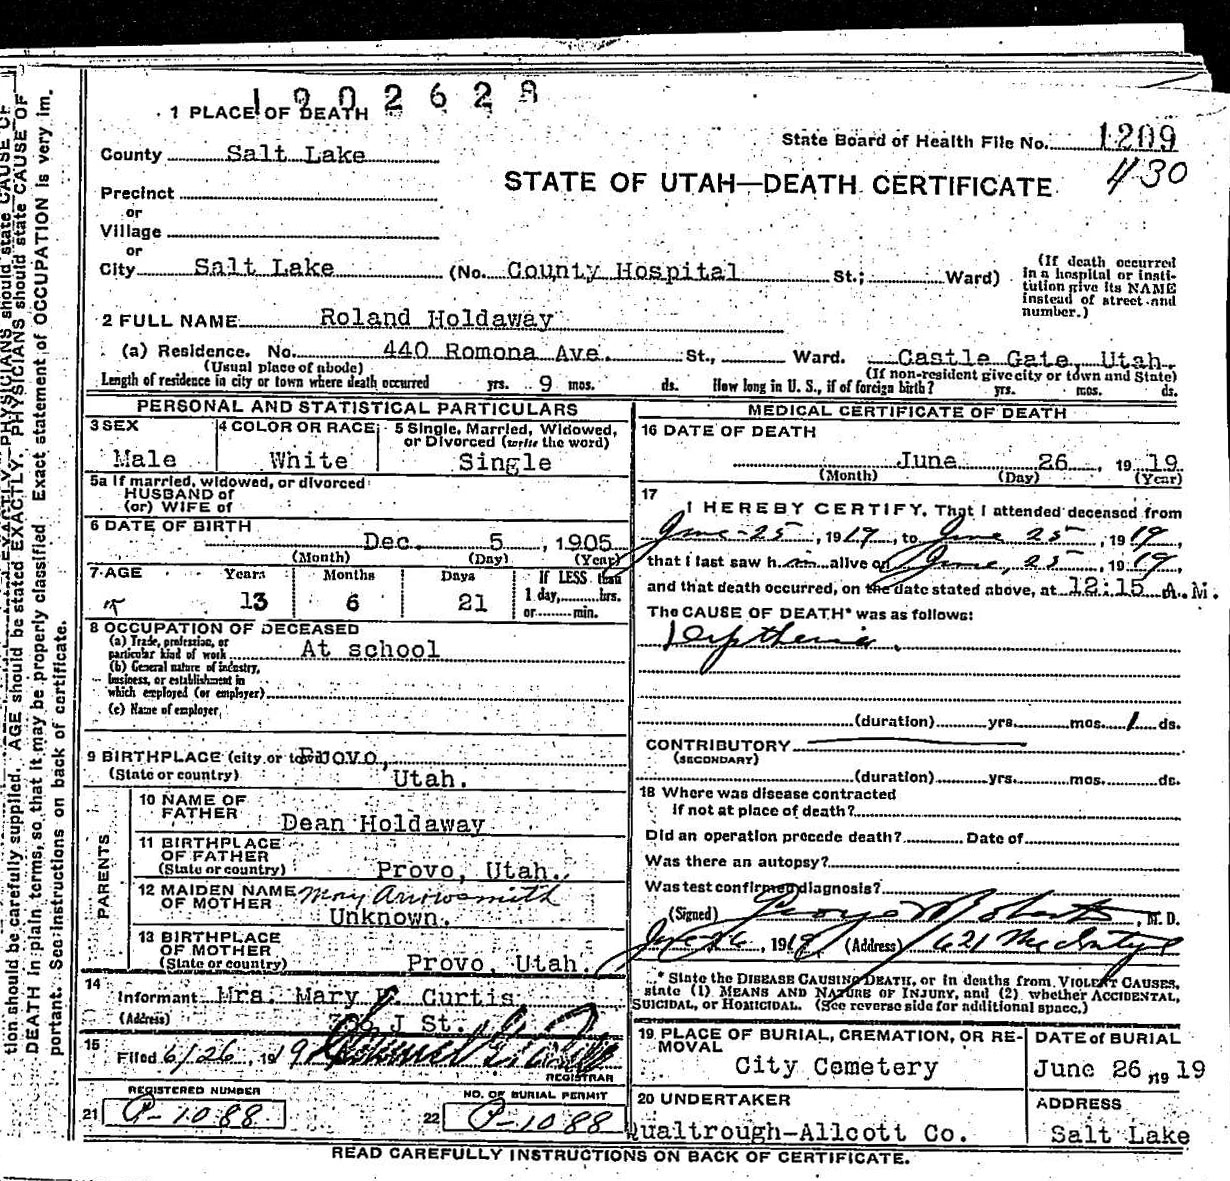 1902628
1 PLACE OF DEATH
State Board of Health File No. 1209
430
County Salt Lake
STATE OF UTAH—DEATH CERTIFICATE
Precinct
or
Village
or
City Salt Lake (No. County Hospital St.; Ward)
(If death occurred in a hospital or insti-
tution give its NAME
instead of street and
number.)
2 FULL NAME Roland Holdaway
(a) Residence. No. 440 Romona Ave. St., Ward. Castle Gate, Utah.
(Usual place of abode) (If non-resident give city or town and State)
Length of residence in city or town where death occurred yrs. 9 mos. ds. How long in U. S., if of foreign birth? yrs. mos. ds.
PERSONAL AND STATISTICAL PARTICULARS
3 SEX 4 COLOR OR RACE 5 Single, Married, Widowed,
or Divorced (write the word)
Male White Single
5a If married, widowed, or divorced
HUSBAND of
(or) WIFE of
6 DATE OF BIRTH
Dec. 5, 1905
(Month) (Day) (Year)
7 AGE Years Months Days If LESS than
1 day, hrs.
or min.
13 6 21
8 OCCUPATION OF DECEASED
(a) Trade, profession, or
particular kind of work At school
(b) General nature of industry,
business, or establishment in
which employed (or employer)
(c) Name of employer
9 BIRTHPLACE (city or town) Provo,
(State or country) Utah.
PARENTS
10 NAME OF
FATHER Dean Holdaway
11 BIRTHPLACE
OF FATHER
(State or country) Provo, Utah.
12 MAIDEN NAME Mary Arrowsmith
OF MOTHER Unknown.
13 BIRTHPLACE
OF MOTHER
(State or country) Provo, Utah.
14
Informant Mrs. Mary Curtis
(Address) J St.
15
Filed 6/26, 1919
REGISTRAR
REGISTERED NUMBER NO. OF BURIAL PERMIT
21 P-1088 22 P-1088
MEDICAL CERTIFICATE OF DEATH
16 DATE OF DEATH
June 26, 1919
(Month) (Day) (Year)
17
I HEREBY CERTIFY, That I attended deceased from
June-25, 1919, to June 25, 1919,
that I last saw him alive on June, 25, 1919,
and that death occurred, on the date stated above, at 12:15 A.M.
The CAUSE OF DEATH* was as follows:
Diptheria.
(duration) yrs. mos. 1 ds.
CONTRIBUTORY
(SECONDARY)
(duration) yrs. mos. ds.
18 Where was disease contracted
if not at place of death?
Did an operation precede death? Date of
Was there an autopsy?
Was test confirmed diagnosis?
(Signed) George W Roberts, M. D.
June 26, 1919 (Address) 621 McIntyre
* State the DISEASE CAUSING DEATH, or in deaths from VIOLENT CAUSES,
state (1) MEANS AND NATURE OF INJURY, and (2) whether ACCIDENTAL,
SUICIDAL, or HOMICIDAL. (See reverse side for additional space.)
19 PLACE OF BURIAL, CREMATION, OR RE-
MOVAL
City Cemetery
DATE of BURIAL
June 26, 1919
20 UNDERTAKER
Qualtrough-Allcott Co.
ADDRESS
Salt Lake
READ CAREFULLY INSTRUCTIONS ON BACK OF CERTIFICATE.
tion should be carefully supplied. AGE should be stated EXACTLY. PHYSICIANS should state CAUSE OF
DEATH in plain terms, so that it may be properly classified. Exact statement of OCCUPATION is very im-
portant. See instructions on back of certificate.